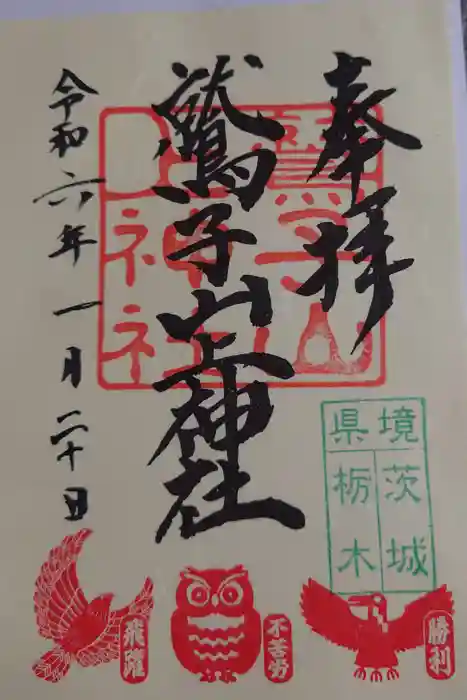 奉拝
鷲子山上神社
令和六年一月二十日
鷲子山
上神社
県境
栃木
茨城
飛躍
不苦労
勝利